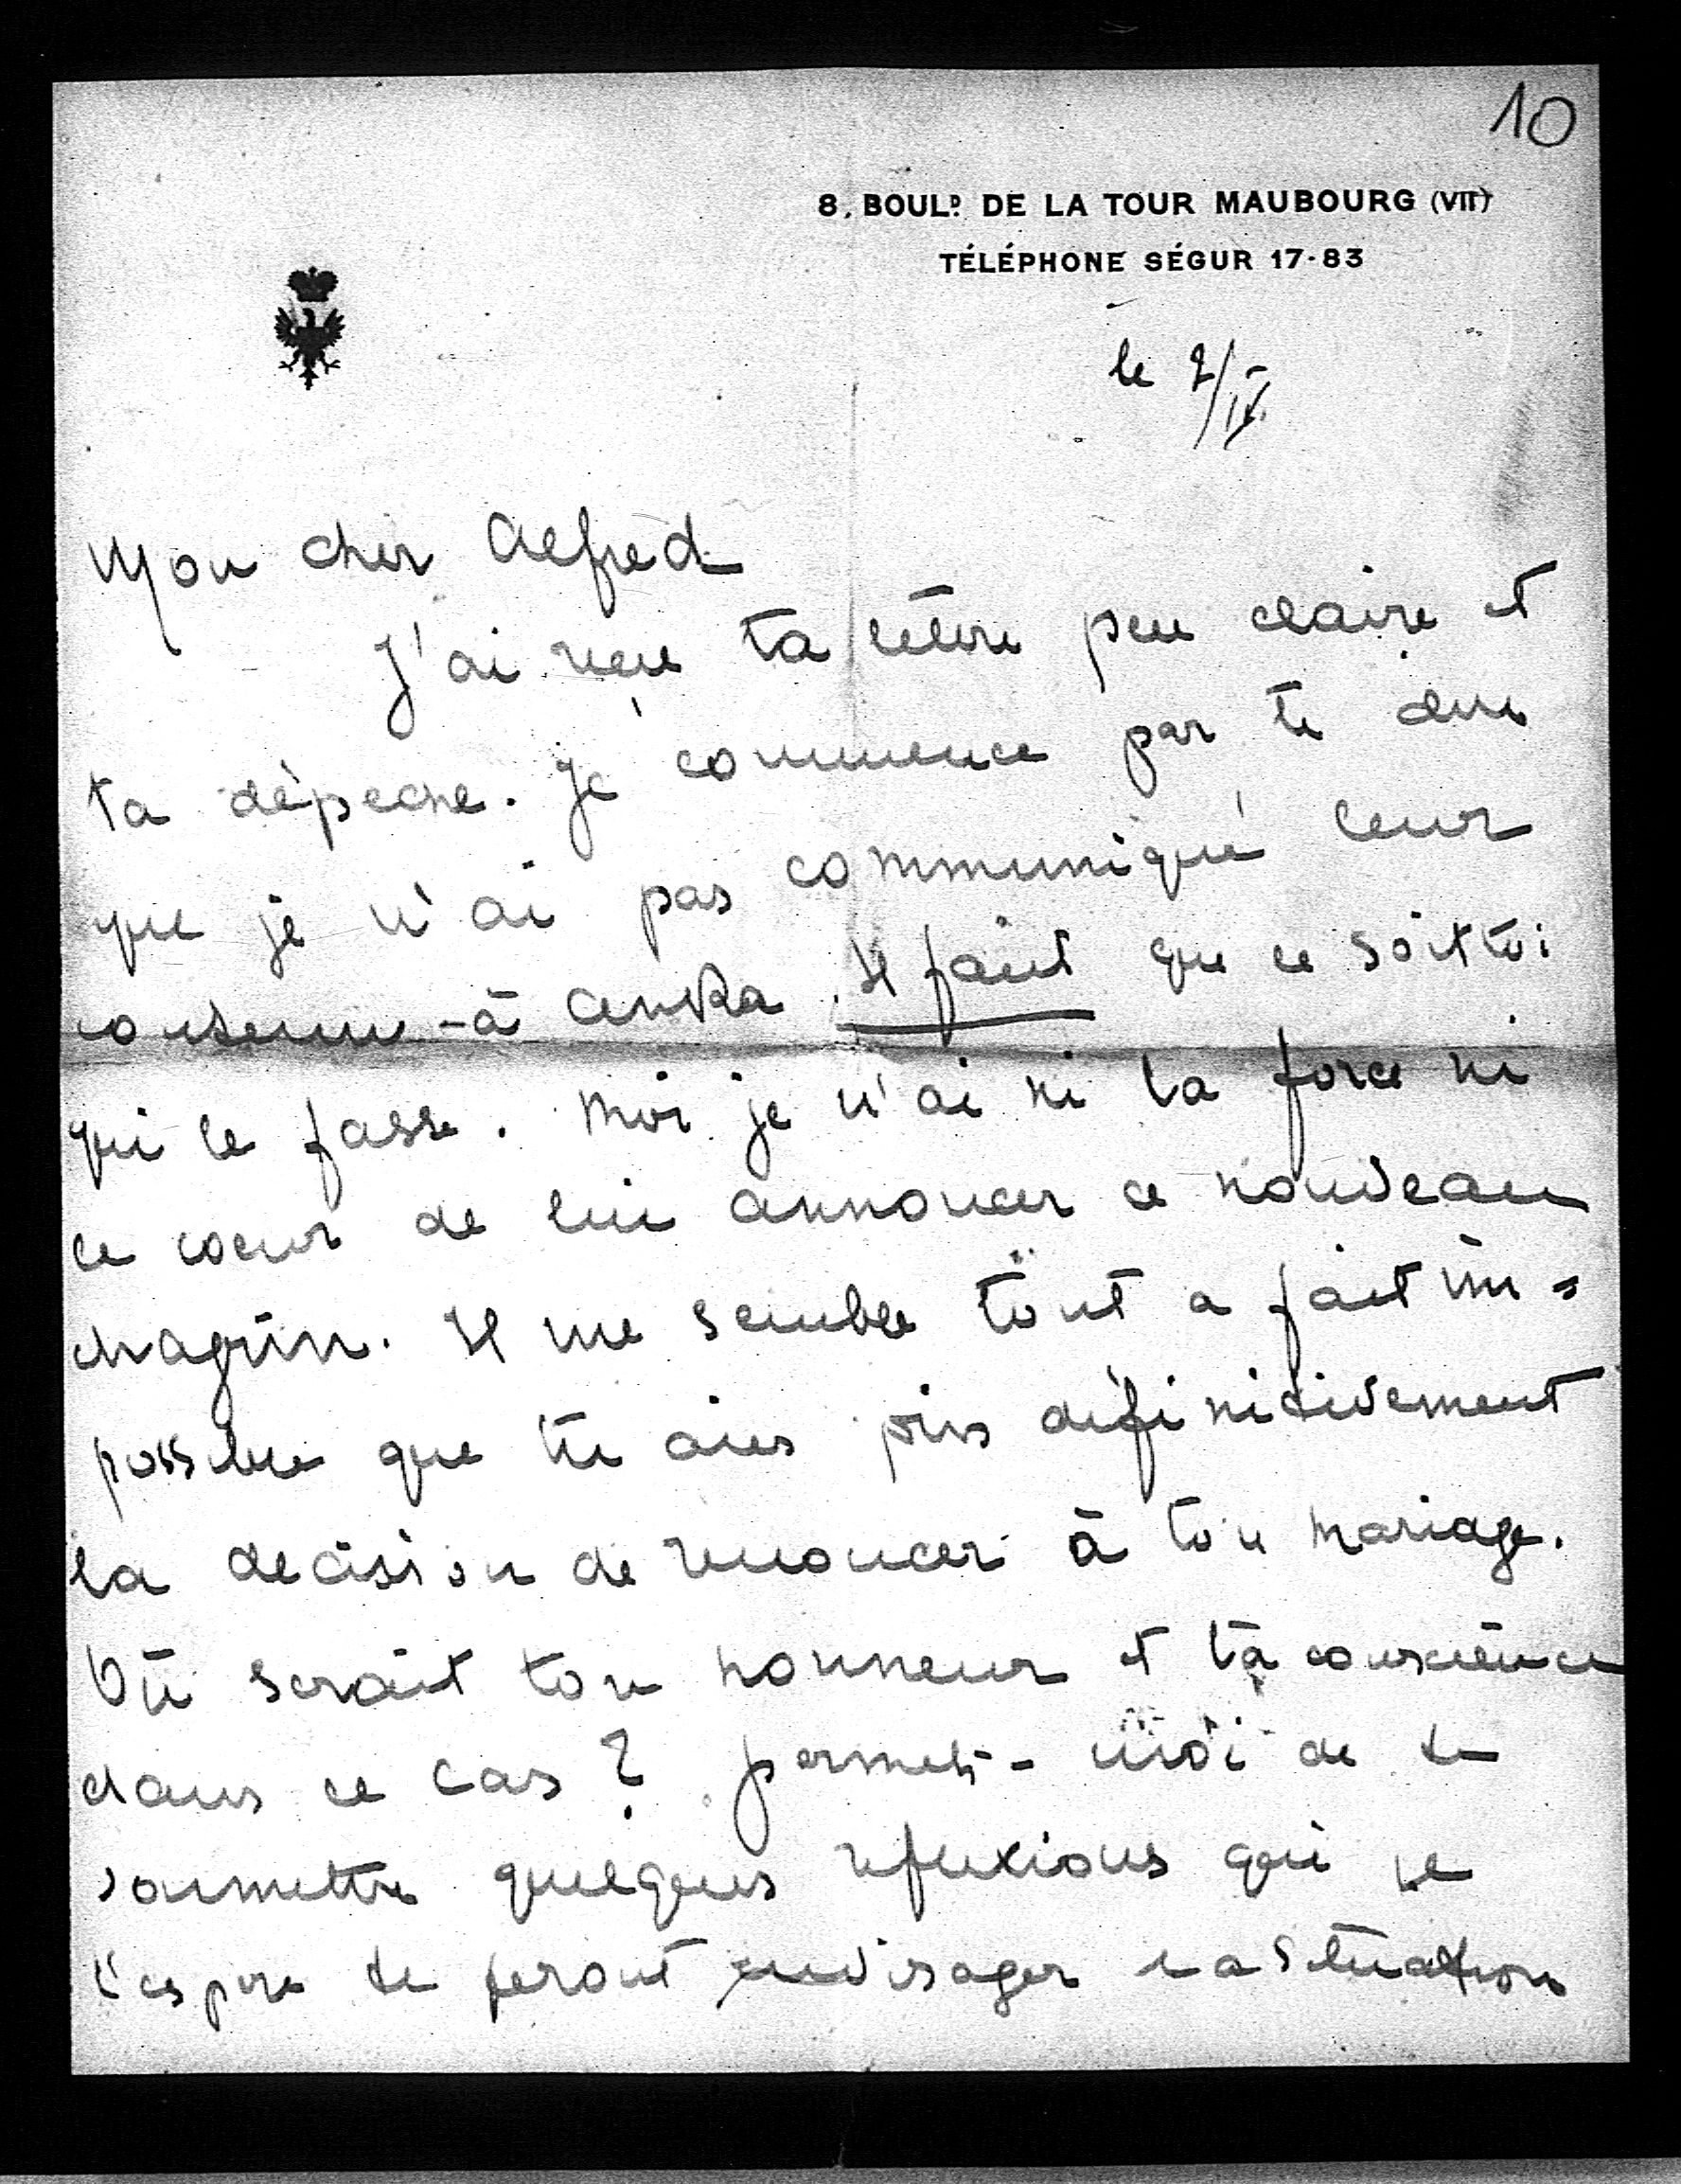 10
8, BOUL.D DE LA TOUR MAUBOURG (VII)
TÉLÉPHONE SÉGUR 17-83
le 2/IV
Mon cher Alfred
J'ai reçu ta lettre peu claire et
ta dépeche. Je commence par te dire
que je n'ai pas communiqué leur
contenu à Anka. Il faut que ce soit toi
qui le fasse. Moi je n'ai ni la force ni
le coeur de lui annoncer ce nouveau
chagrin. Il me semble tout a fait im=
possible que tu aies pris définitivement
la decision de renoncer à ton mariage.
Où serait ton honneur et ta conscience
dans ce cas? permets-moi de te
soumettre quelques reflexions qui je
l'espere te feront envisager la situation